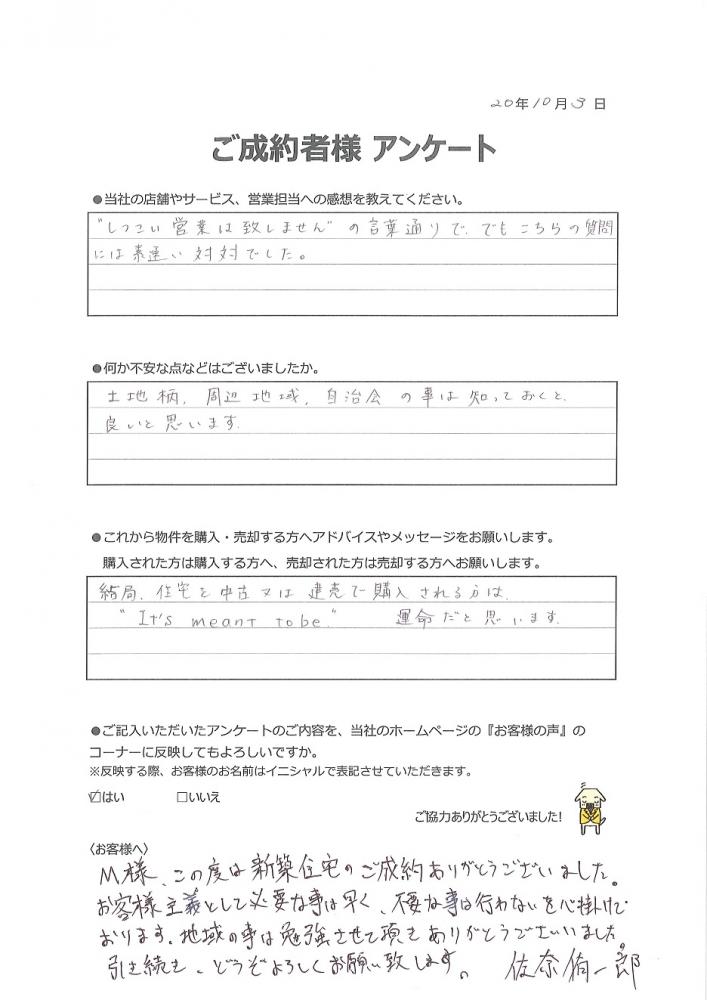 20年10月3日
ご成約者様 アンケート
●当社の店舗やサービス、営業担当への感想を教えてください。
"しつこい営業は致しません"の言葉通りで、でもこちらの質問
には素速い対対でした。
●何か不安な点などはございましたか。
土地柄、周辺地域、自治会の事は知っておくと、
良いと思います。
●これから物件を購入・売却する方へアドバイスやメッセージをお願いします。
購入された方は購入する方へ、売却された方は売却する方へお願いします。
結局、住宅を中古又は建売で購入される方は、
"It's meant to be." 運命だと思います。
●ご記入いただいたアンケートのご内容を、当社のホームページの『お客様の声』の
コーナーに反映してもよろしいですか。
※反映する際、お客様のお名前はイニシャルで表記させていただきます。
☑はい □いいえ
ご協力ありがとうございました!
〈お客様へ〉
M様、この度は新築住宅のご成約ありがとうございました。
お客様主義として必要な事は早く、不要な事は行わないを心掛けて
おります。地域の事は勉強させて頂きありがとうございました。
引き続き、どうぞよろしくお願い致します。 佐奈 一郎